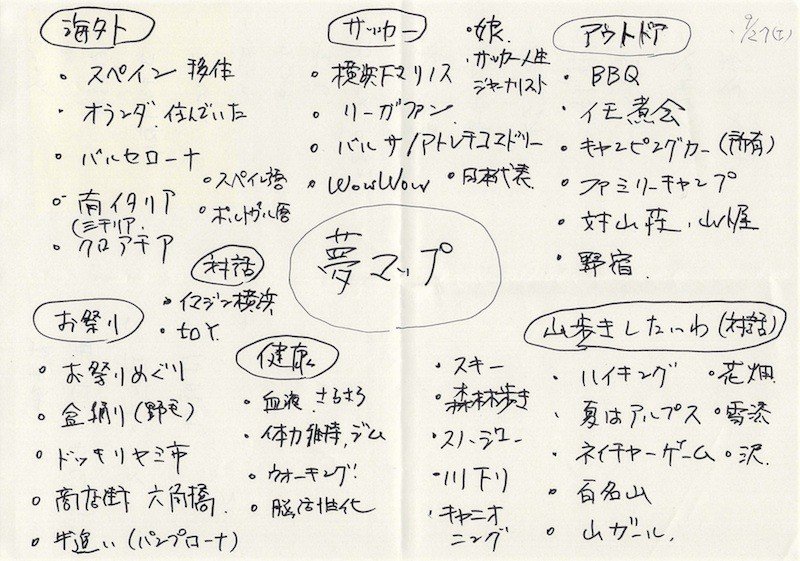 9/27(土)
海外
・スペイン 移住
・オランダ 住んでいた
・バルセローナ
・南イタリア
・クロアチア
・スペイン語
・ポルトガル語
サッカー
・横浜Fマリノス
・リーガファン
・バルサ/アトレチコマドリー
・WowWow
・日本代表
・娘
・サッカー人生
ジャーナリスト
アウトドア
・BBQ
・イモ煮会
・キャンピングカー(所有)
・ファミリーキャンプ
・山荘、山小屋
・野宿
夢マップ
対話
・イマジン横浜
・toY
お祭り
・お祭りめぐり
・盆踊り
・ドッキリヤミ市
・商店街 六角橋
・牛追い(パンプローナ)
健康
・血液 さらさら
・体力維持、ジム
・ウォーキング
・脳活性化
山歩きしたいわ(対話)
・スキー
・森林歩き
・スノーシュー
・川下り
・キャニオ
ニング
・ハイキング
・夏はアルプス
・ネイチャーゲーム
・百名山
・山ガール
・花畑
・雪渓
・沢